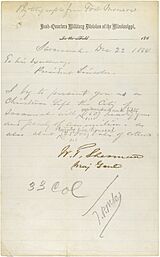 By telegraph from Fort Monroe
Head-Quarters Military Division of the Mississippi,
In the Field, 186
Savannah Dec 22 1864
To his Excellency,
President Lincoln
I beg to present you as a
Christmas Gift the City of
Savannah with 150 heavy guns
and plenty of ammunition &
also about 25,000 bales of cotton
W. T. Sherman
Maj Genl
3d Col